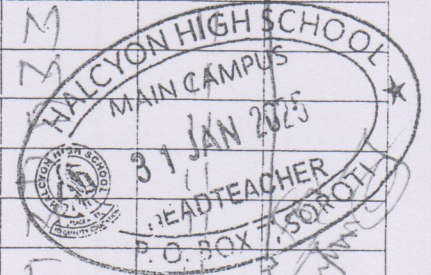 HALCYON HIGH SCHOOL
MAIN CAMPUS
31 JAN 2025
HEADTEACHER
P. O. BOX 7, SOROTI
M
3
HALCYON HIGH SCHOOL